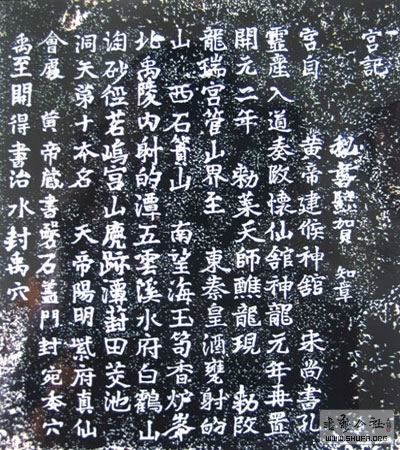 宮記
秘書監賀 知章
宮自 黃帝建候神舘 宋尚書孔
靈產入道奏改懷仙舘神龍元年再置
開元二年 勑葉天師醮龍現 勑改
龍瑞宮管山界至 東秦皇酒甕射的
山 西石簣山 南望海玉笥香炉峯
北禹陵內射的潭五雲溪水府白鶴山
淘砂徑茗塢宮山鹿跡潭葑田茭池
洞天第十本名 天帝陽明紫府真仙
會處 黃帝藏書磐石蓋門封宛委穴
禹至開得書治水封禹穴
WWW.SHUFA.ORG